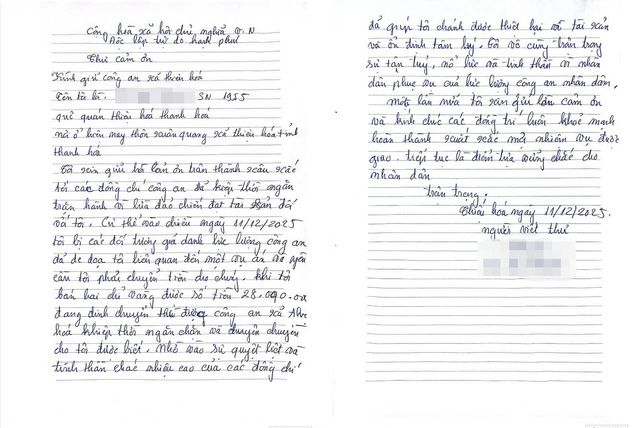 Cộng hoà xã hội chủ nghĩa V.N
Độc lập tự do hạnh phúc
Thư cảm ơn
Kính gửi công an xã thiệu hoá
Tên tôi là. SN 1955
quê quán thiệu hoá thanh hoá
nơi ở hiện nay thôn xuân quang xã thiệu hoá tỉnh
thanh hoá
Tôi xin gửi lời cản ơn trân thành sâu sắc
tới các đồng chí công an đã kiệp thời ngăn
trặn hành vi lừa đảo chiến đạt tài sản đối
với tôi. Cụ thể vào chiều ngày 11/12/2025
tôi bị các đối tượng giả danh lực lượng công an
đã đe doạ tôi liên quan đến một vụ án và yêu
cầu tôi phải chuyển tiền cho chúng, khi tôi
bán hai chỉ vàng được số tiền 28.000.000
đang định chuyển thì được công an xã thiệu
hoá khiệp thời ngăn chặn và
cho tôi được biết. Nhờ vào sự quyết liệt và
tinh thần chác nhiệm cao của các đồng chí
đã giúp tôi chánh được thiệt hại về tài sản
và ổn định tâm lý. Tôi vô cùng trân trọng
sự tận tuỵ, nỗ lực và tinh thần vì nhân
dân phục vụ của lực lượng công an nhân dân,
một lần nữa tôi xin gửi lời cảm ơn
và kính chúc các đồng trí luôn khoẻ mạnh
hoàn thành suất sắc mọi nhiệm vụ được
giao. tiếp tục là điểm tựa vững chắc cho
nhân dân
trân trọng.
Thiệu hoá ngày 11/12/2025.
người viết thư